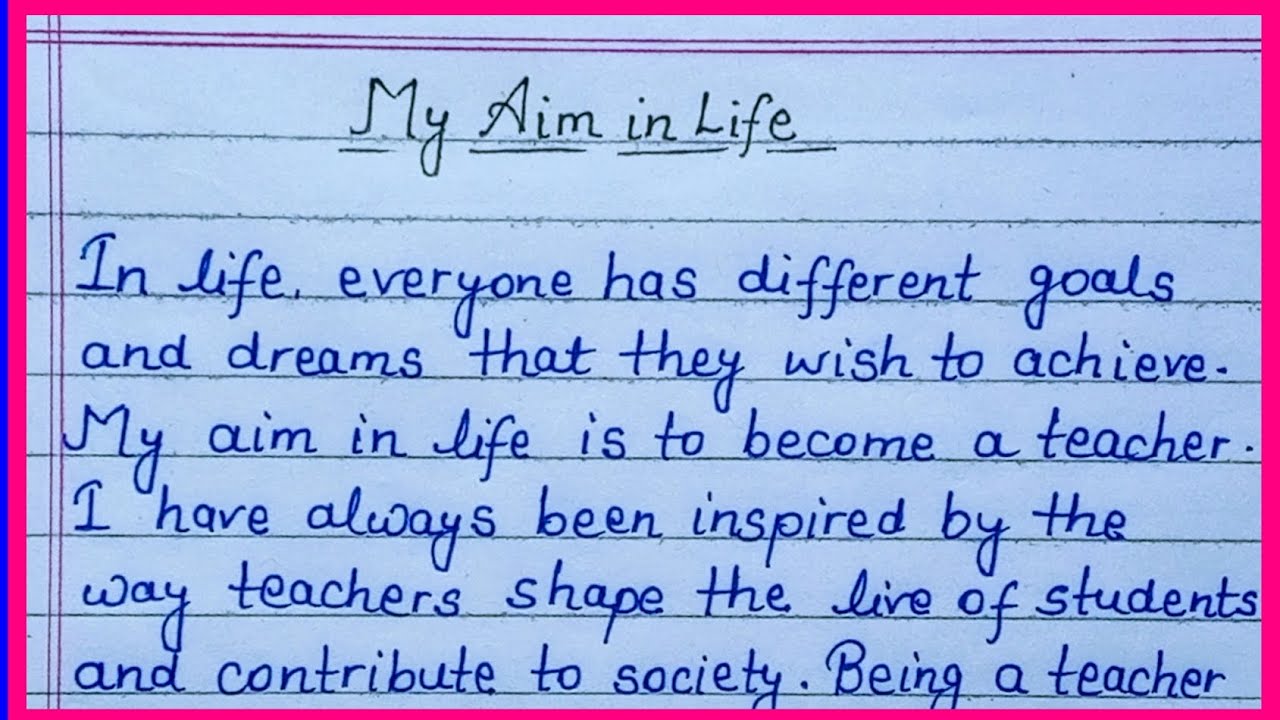 My Aim in Life
In life, everyone has different goals
and dreams that they wish to achieve.
My aim in life is to become a teacher.
I have always been inspired by the
way teachers shape the live of students
and contribute to society. Being a teacher